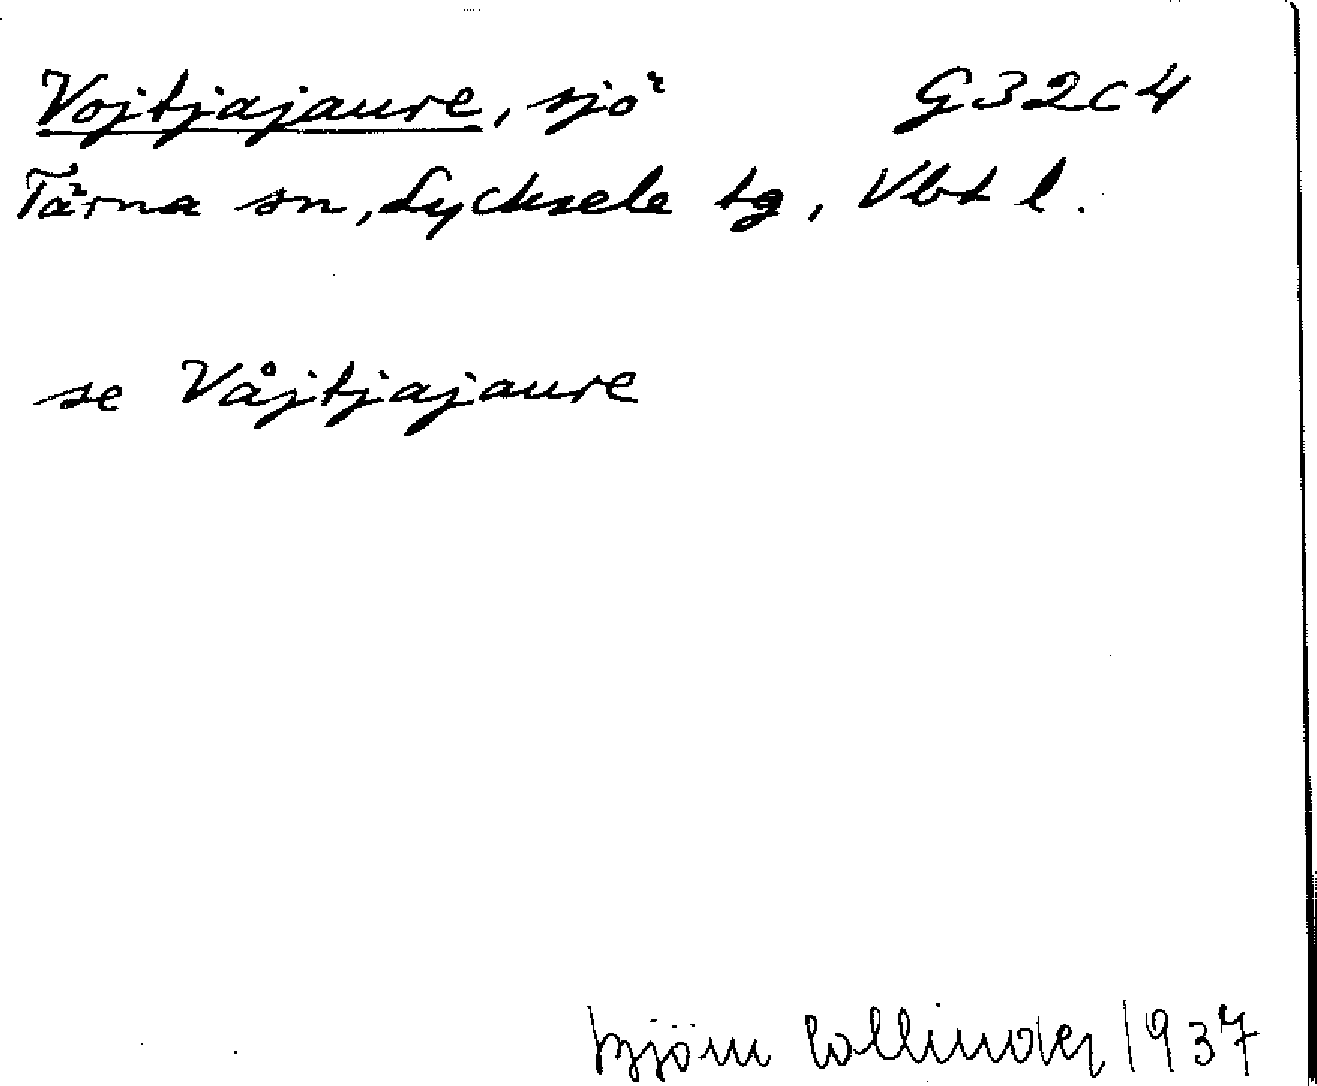 Vojtjajaure, sjö G32c4
Tärna sn, Lycksele tg, Vbt l.
se Våjtjajaure
björn collinder 1937